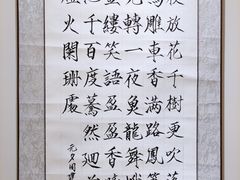 放花千樹更吹落
馬雕車香滿路鳳簫
光轉一夜魚龍舞
縷笑語盈盈暗香
千百度驀然迴
火闌珊處
元夕